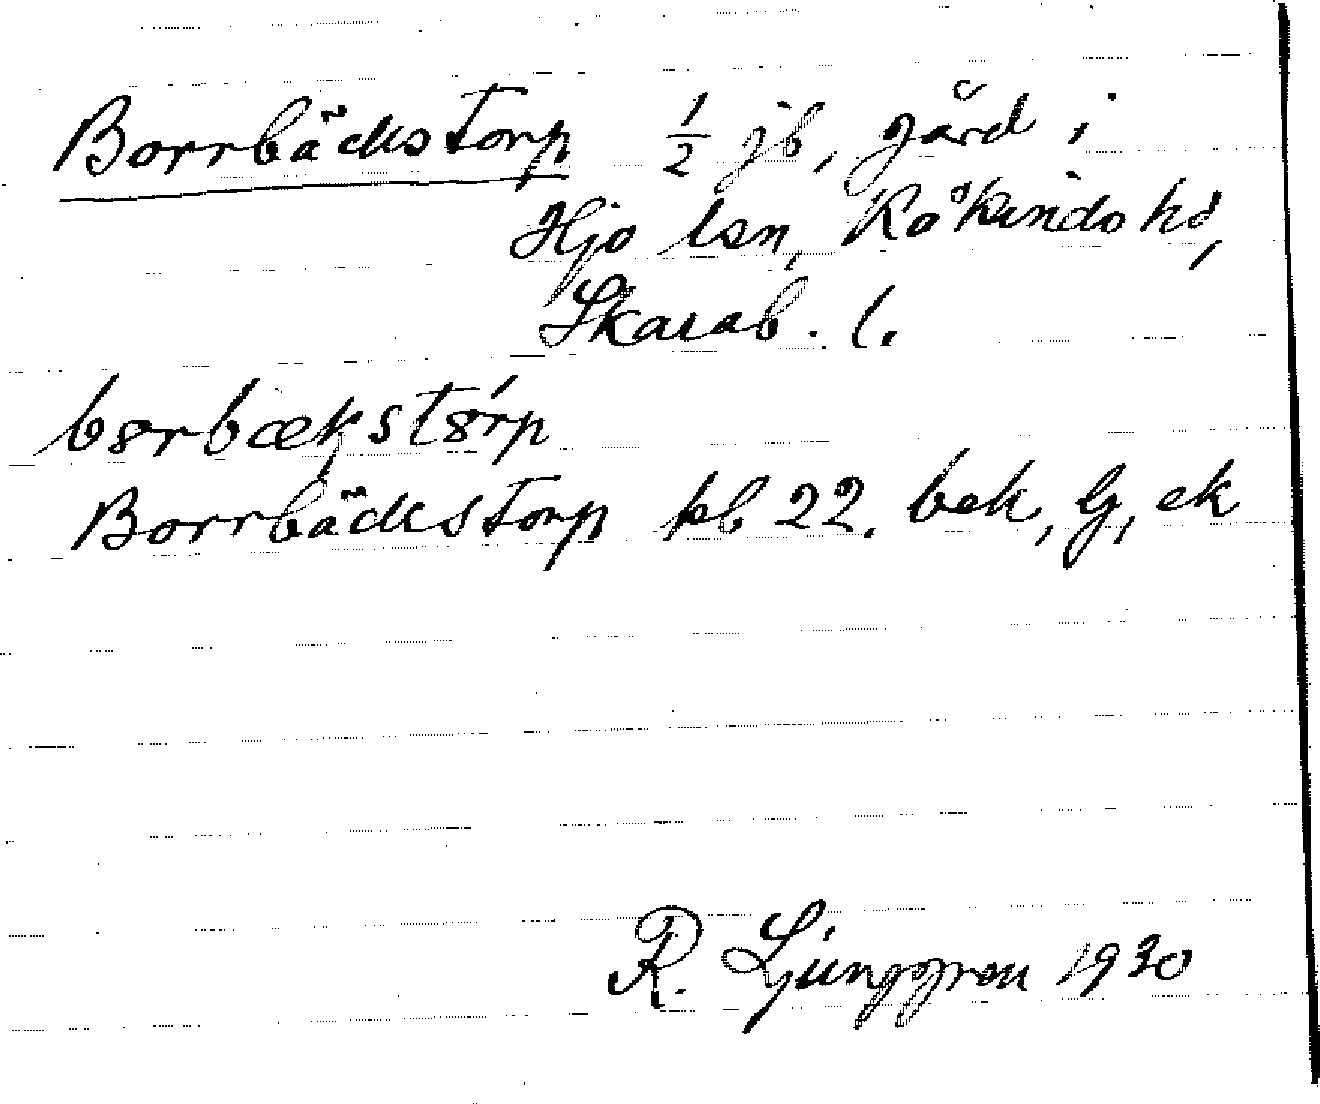 Borrbäckstorp ½ jb, gård i
Hjo lsn, Kåkinds hd,
Skarab. l.
bσrbækstσ́rp
Borrbäckstorp kb 22. bek, G, ek
R. Ljunggren 1930